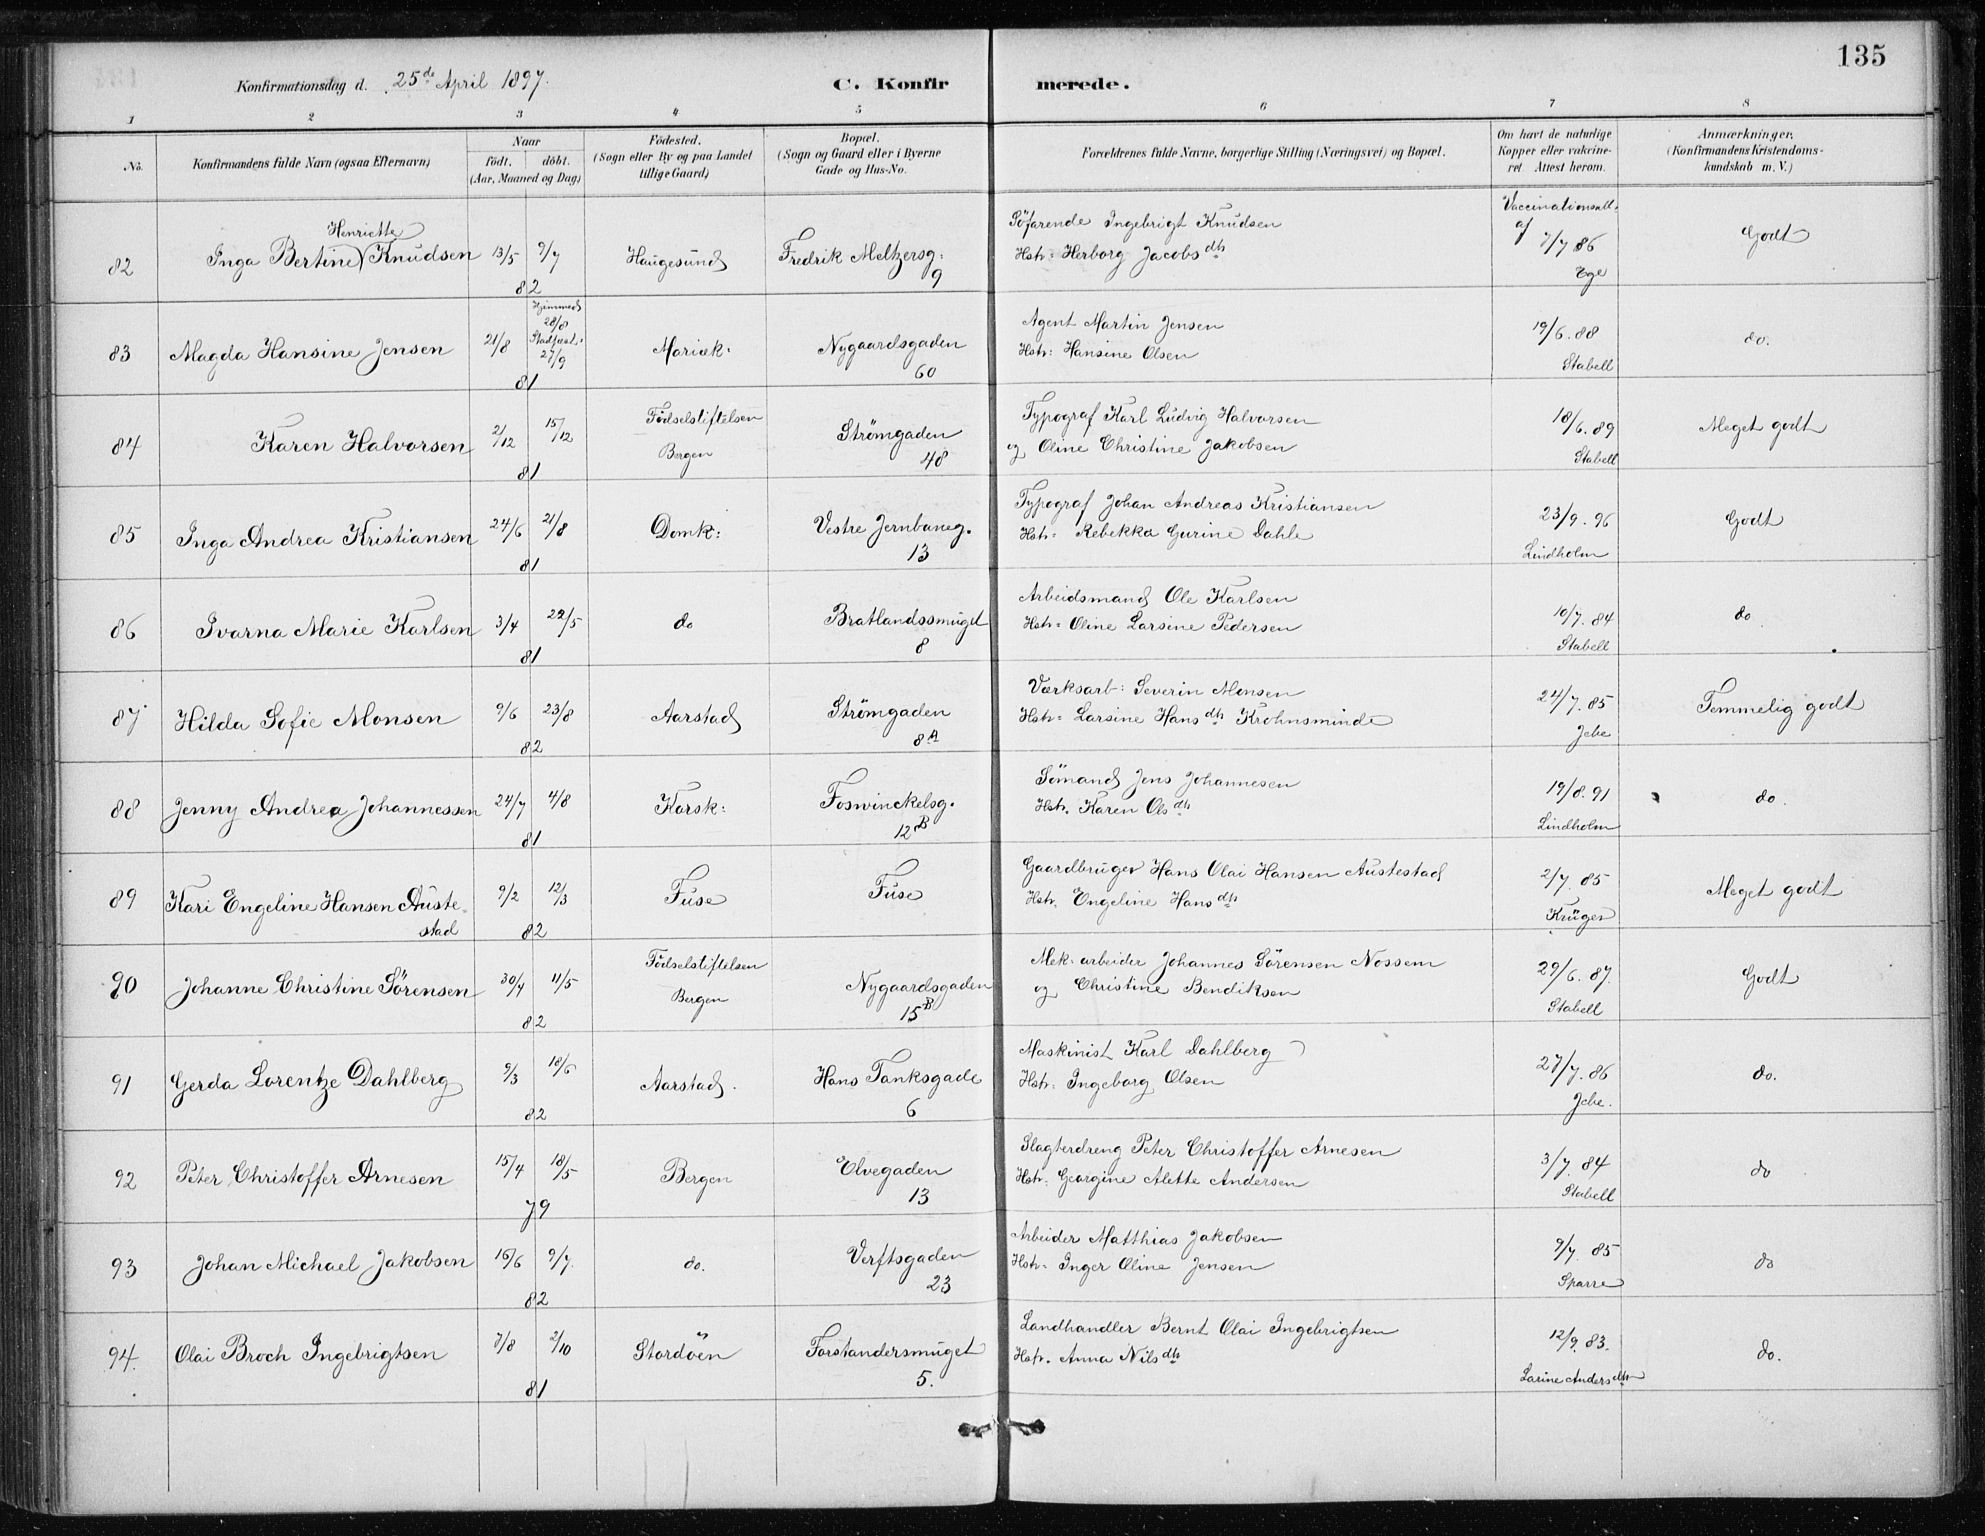 135
Konfirmationsdag d. 25de April 1897.
C. Konfirmerede.
1 2 3 4 5 6 7 8
No. Konfirmandens fulde Navn (ogsaa Efternavn) Naar født, døbt. (Aar, Maaned og Dag) Fødested. (Sogn eller By og paa Landet tillige Gaard) Bopæl. (Sogn og Gaard eller i Byerne Gade og Hus-No. Forældrenes fulde Navne, borgerlige Stilling (Næringsvei) og Bopæl. Om havt de naturlige Kopper eller vakcineret. Attest herom. Anmærkninger. (Konfirmandens Kristendomskundskab m. V.)
82 Inga Bertine Henriette Knudsen 13/5 9/7 82 Haugesund Fredrik Meltzersg: 9 Söfarende Ingebrigt Knudsen Vaccinationsatt. af 7/7 86 Godt
Hstr: Herborg Jacobsdtr
83 Magda Hansine Jensen 21/8 Hjemmed 28/8 Stadfæst. 27/9 81 Mariæk: Nygaardsgaden 60 Agent Martin Jensen 19/6. 88 Stabell do.
Hstr: Hansine Olsen
84 Karen Halvorsen 2/12 15/12 81 Fødselstiftelsen Bergen Strömgaden 48 Typograf Karl Ludvig Halvorsen 18/6. 89 Stabell Meget godt
og Oline Christine Jakobsen
85 Inga Andrea Kristiansen 24/6 21/8 81 Domk: Vestre Jernbaneg. 13 Typograf Johan Andreas Kristiansen 23/9. 96 Lindholm Godt
Hstr: Rebekka Gurine Dahle
86 Ivarna Marie Karlsen 3/4 22/5 81 do Bratlandssmuget 8 Arbeidsmand Ole Karlsen 10/7. 84 Stabell do
Hstr: Oline Larsine Pedersen
87 Hilda Sofie Monsen 9/6 23/8 82 Aarstad Strömgaden 8A Værksarb: Severin Monsen 24/7. 85 Jebe Temmelig godt
Hstr: Larsine Hansdtr Krohnsminde
88 Jenny Andrea Johannessen 24/7 4/8 81 Korsk: Foswinckelsg. 12B Sömand Jens Johannesen 19/8. 91 Lindholm do.
Hstr. Karen Olsdtr
89 Kari Engeline Hansen Austestad 9/2 12/3 82 Fuse Fuse Gaardbruger Hans Olai Hansen Austestad 2/7. 85 Krüger Meget godt
Hstr. Engeline Hansdtr
90 Johanne Christine Sörensen 30/4 11/5 82 Fødselstiftelsen Bergen Nygaardsgaden 15B Mek: arbeider Johannes Sörensen Nossem 29/6. 87. Stabell Godt
og Christine Bendiksen
91 Gerda Lorentze Dahlberg 9/3 18/6 82 Aarstad. Hans Tanksgade 6 Maskinist Karl Dahlberg 27/7. 86 Jebe. do.
Hstr: Ingeborg Olsen
92 Peter Christoffer Arnesen 15/4 18/5 79 Bergen Elvegaden 13 Slagterdreng Peter Christoffer Arnesen 3/7. 84 Stabell do
Hstr: Georgine Alette Andersen
93 Johan Michael Jakobsen 16/6 9/7. 82 do. Verftsgaden 23 Arbeider Matthias Jakobsen 9/7. 85 Sparre do
Hstr: Inger Oline Jensen
94. Olai Broch Ingebrigtsen 7/8 2/10 81 Stordöen Forstandersmuget 5. Landhandler Bernt Olai Ingebrigtsen 12/9. 83. Larine Andersdtr do.
Hstr. Anna Nilsdtr